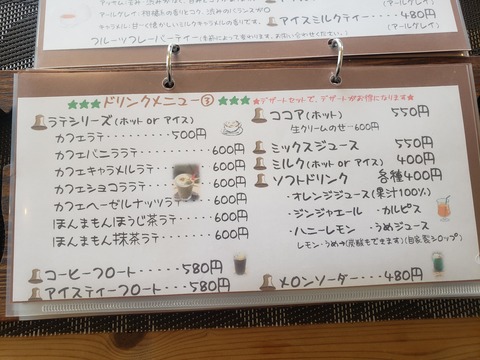 アールグレイ・柑橘系の香りとコク、渋みのバランスが◎
キャラメル・甘〜く懐かしいミルクキャラメルの香りです。
フルーツフレーバーティー
アイスミルクティー
(アールグレイ)
480円
(アールグレイ)
★★★ドリンクメニュー③★★★
★デザートセットで、デザートがお得になります★
ラテシリーズ(ホット or アイス)
カフェラテ・・・・・500円
カフェバニララテ・・・・600円
カフェキャラメルラテ・・600円
カフェショコララテ・・・600円
カフェヘーゼルナッツラテ・・600円
ほんまもんほうじ茶ラテ・・600円
ほんまもん抹茶ラテ・・・600円
コーヒーフロート・・・・・580円
アイスティーフロート・・・580円
ココア(ホット or アイス) 550円
生クリームのせ…600円
ミックスジュース 550円
ミルク(ホット or アイス) 400円
ソフトドリンク 各種400円
・オレンジジュース(果汁100%)
・ジンジャエール ・カルピス
・ハニーレモン ・うめジュース
レモン・うめ→(炭酸もできます)(自家製シロップ)
メロンソーダー・・・480円